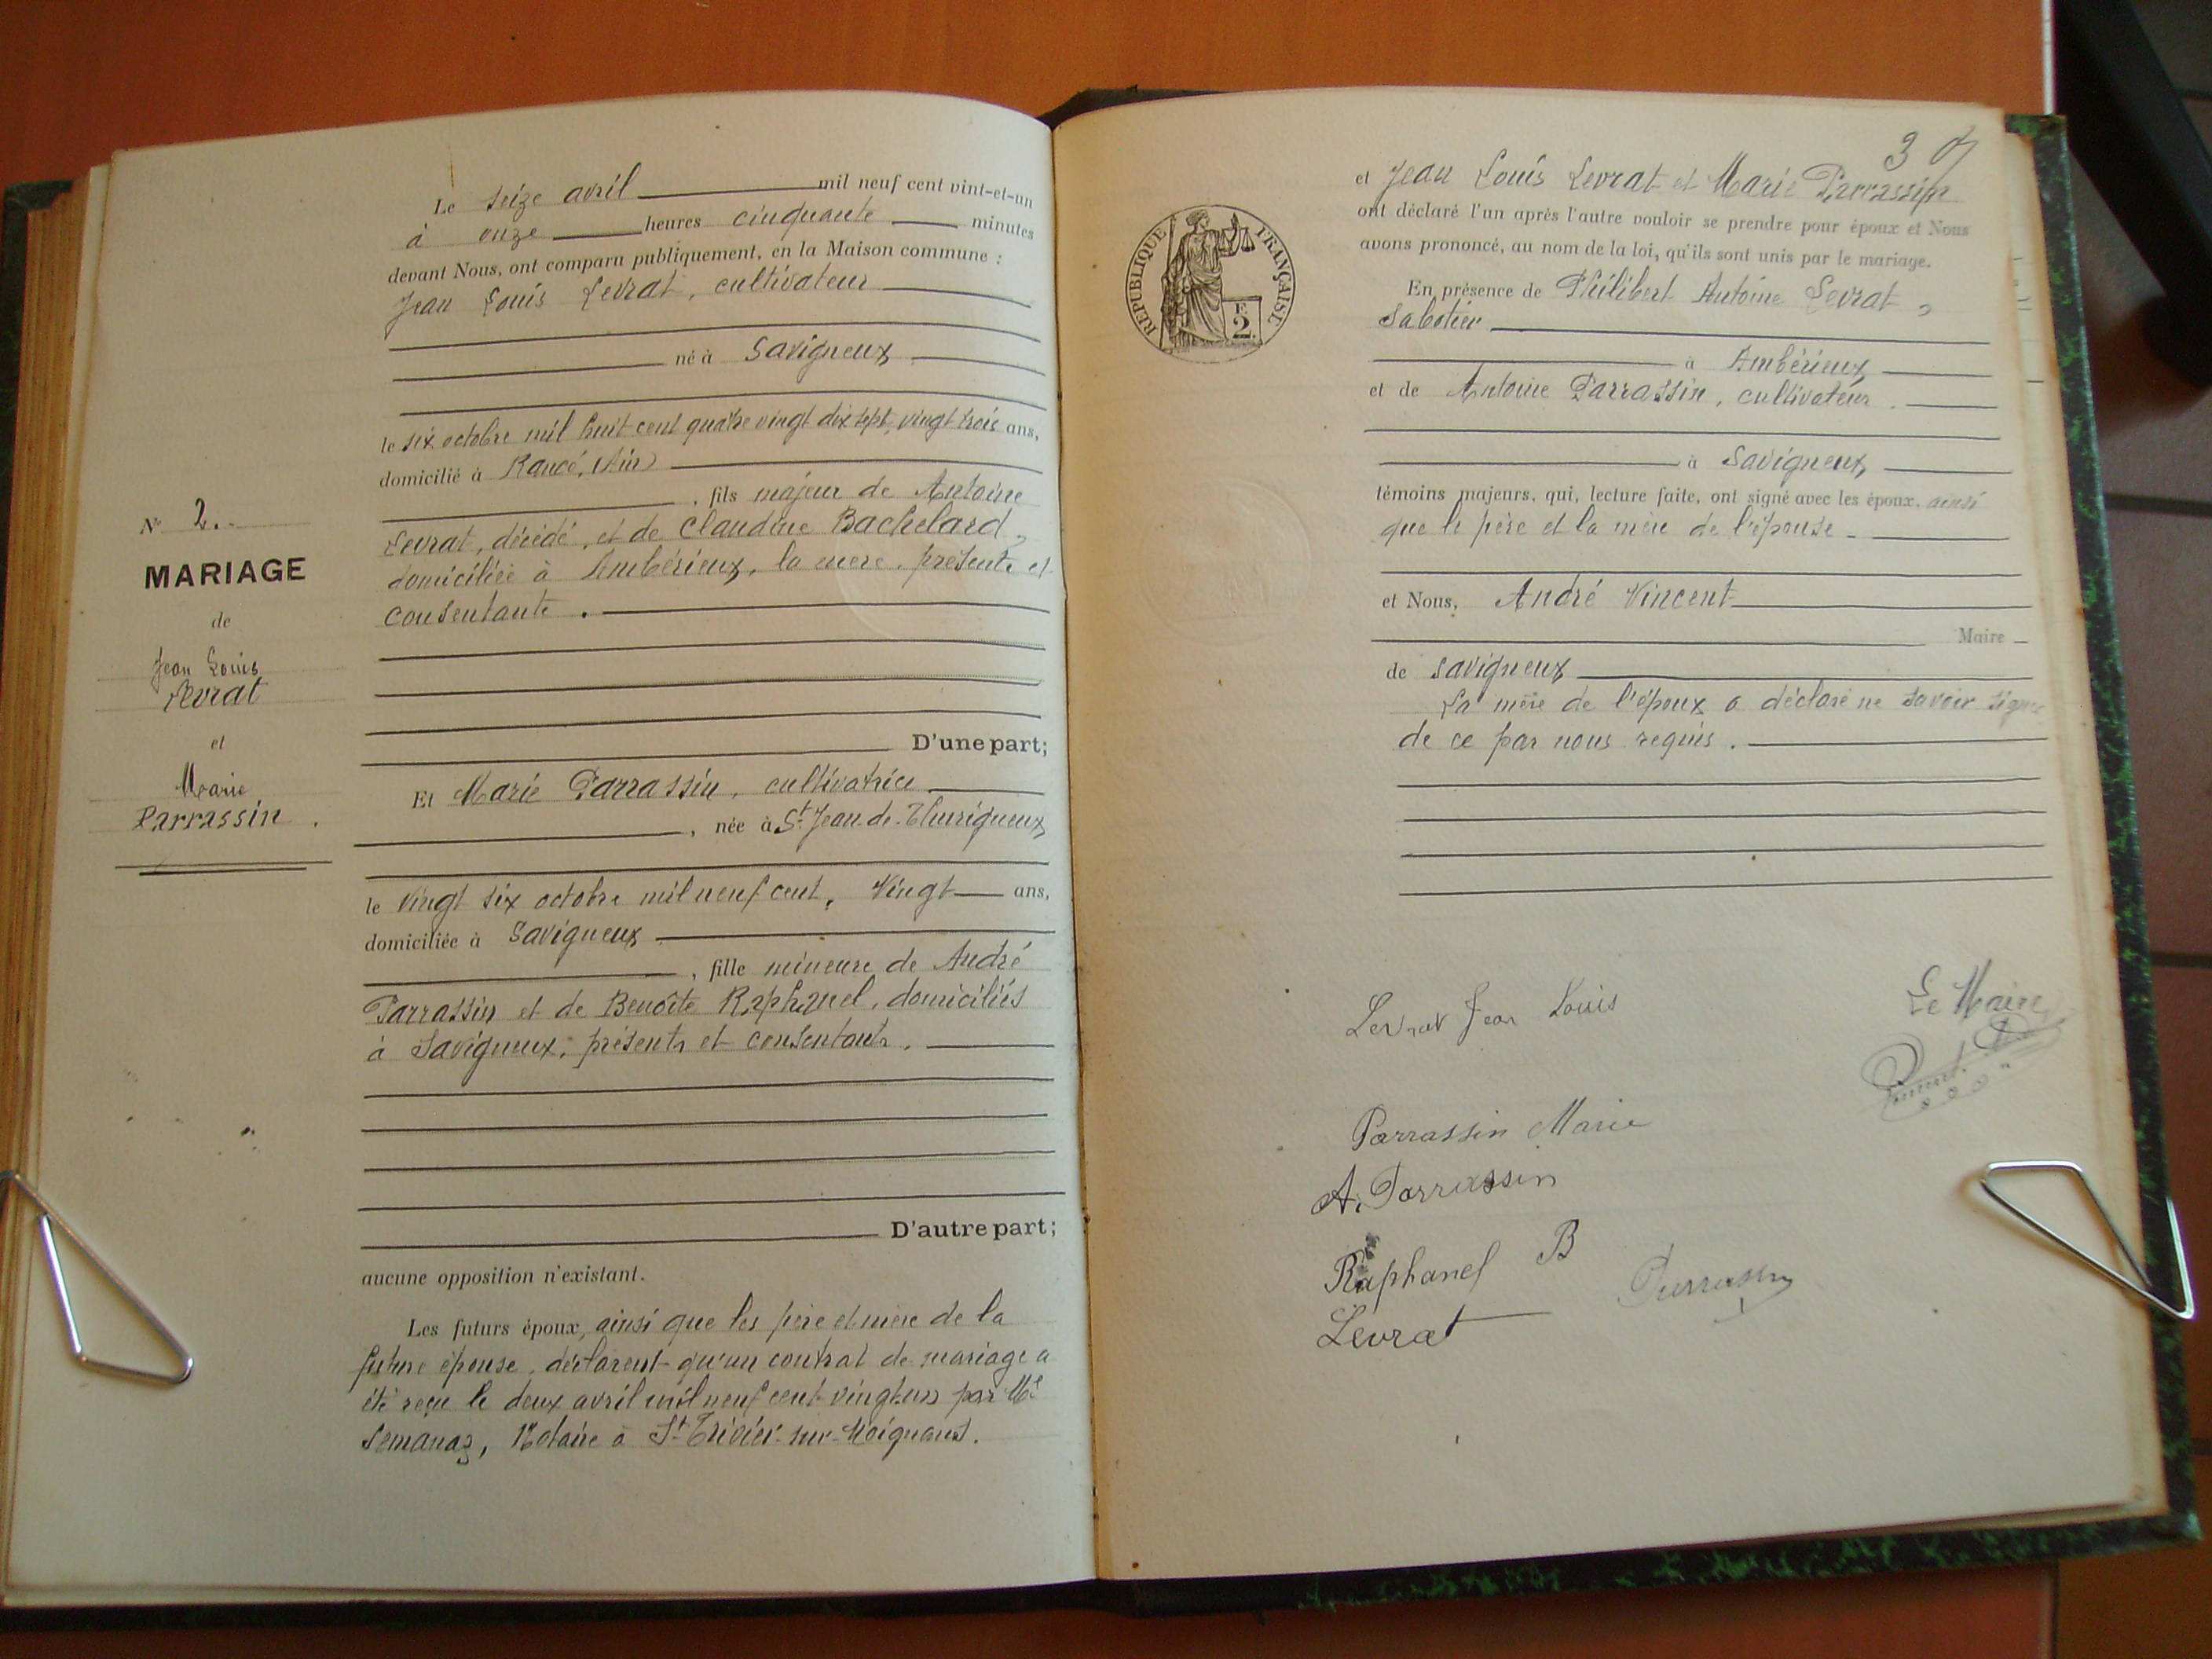 Le seize avril mil neuf cent vint-et-un
à onze heures cinquante minutes
devant Nous, ont comparu publiquement, en la Maison commune :
Jean Louis Levrat, cultivateur
né à Savigneux
le six octobre mil huit cent quatre vingt dix sept, vingt trois ans,
domicilié à Rancé, (Ain)
, fils majeur de Antoine
Levrat, décédé, et de Claudine Bachelard,
domiciliée à Ambérieux, la mère, présente et
consentante.
D'une part;
Nº 2.
MARIAGE
de
Jean Louis
Levrat
et
Marie
Parrassin.
Et Marie Parrassin, cultivatrice
, née à St Jean-de-Thurigneux
le vingt six octobre mil neuf cent, vingt ans,
domiciliée à Savigneux
, fille mineure de André
Parrassin et de Benoîte Raphanel, domiciliés
à Savigneux, présents et consentants.
D'autre part;
aucune opposition n'existant.
Les futurs époux, ainsi que les père et mère de la
future épouse, déclarent qu'un contrat de mariage a
été reçu le deux avril mil neuf cent vingt un par Me
Semanaz, Notaire à St Trivier-sur-Moignans.
REPUBLIQUE FRANÇAISE
F.
2.
et Jean Louis Levrat et Marie Parrassin
ont déclaré l'un après l'autre vouloir se prendre pour époux et Nous
avons prononcé, au nom de la loi, qu'ils sont unis par le mariage.
En présence de Philibert Antoine Levrat,
sabotier
à Ambérieux
et de Antoine Parrassin, cultivateur.
à Savigneux
témoins majeurs, qui, lecture faite, ont signé avec les époux, ainsi
que le père et la mère de l'épouse
et Nous, André Vincent
Maire
de Savigneux
La mère de l'époux a déclaré ne savoir signer
de ce par nous requis.
Levrat Jean Louis
Le Maire
Vincent
Parrassin Marie
A. Parrassin
Raphanel B
Parrassin
Levrat